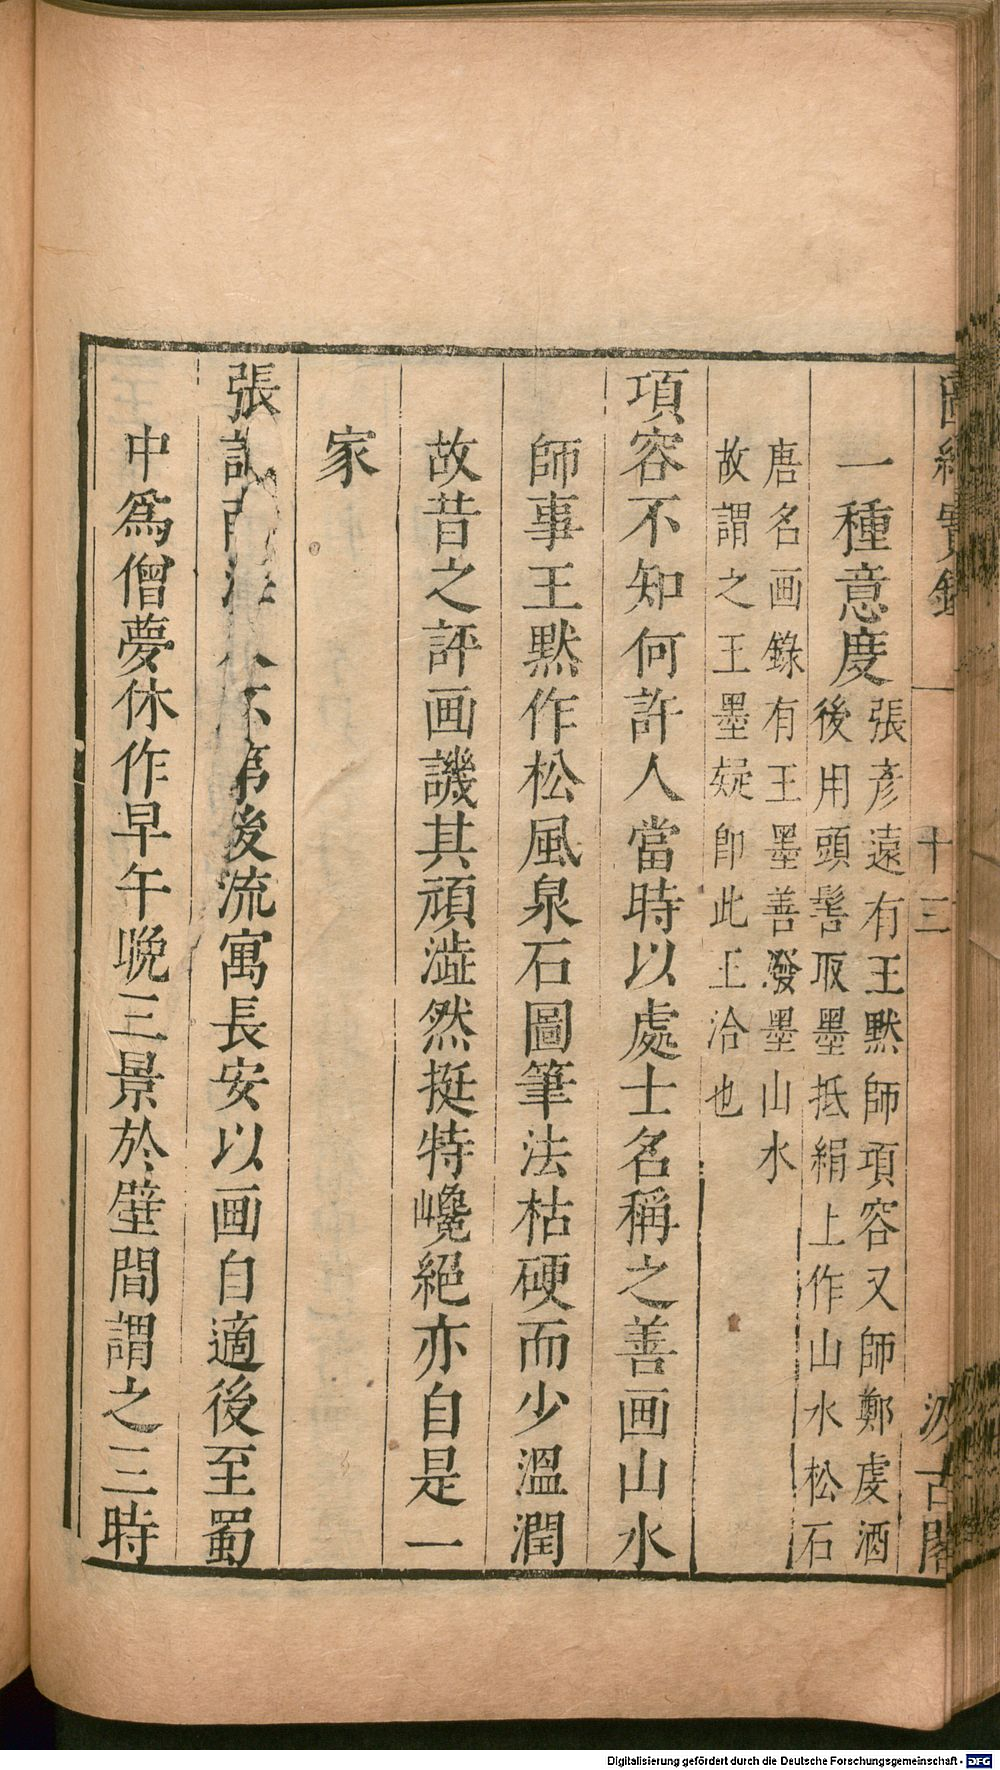 圖繪寶鑑
十三
汲古閣
一種意度
張彥遠有王默師項容又師鄭虔酒
後用頭髻取墨抵絹上作山水松石
唐名画錄有王墨善潑墨山水
故謂之王墨疑卽此王洽也
項容不知何許人當時以處士名稱之善画山水
師事王默作松風泉石圖筆法枯硬而少溫潤
故昔之評画譏其頑澁然挺特巉絕亦自是一
家
張詢南海人不第後流寓長安以画自適後至蜀
中爲僧夢休作早午晚三景於壁間謂之三時
Digitalisierung gefördert durch die Deutsche Forschungsgemeinschaft - DFG